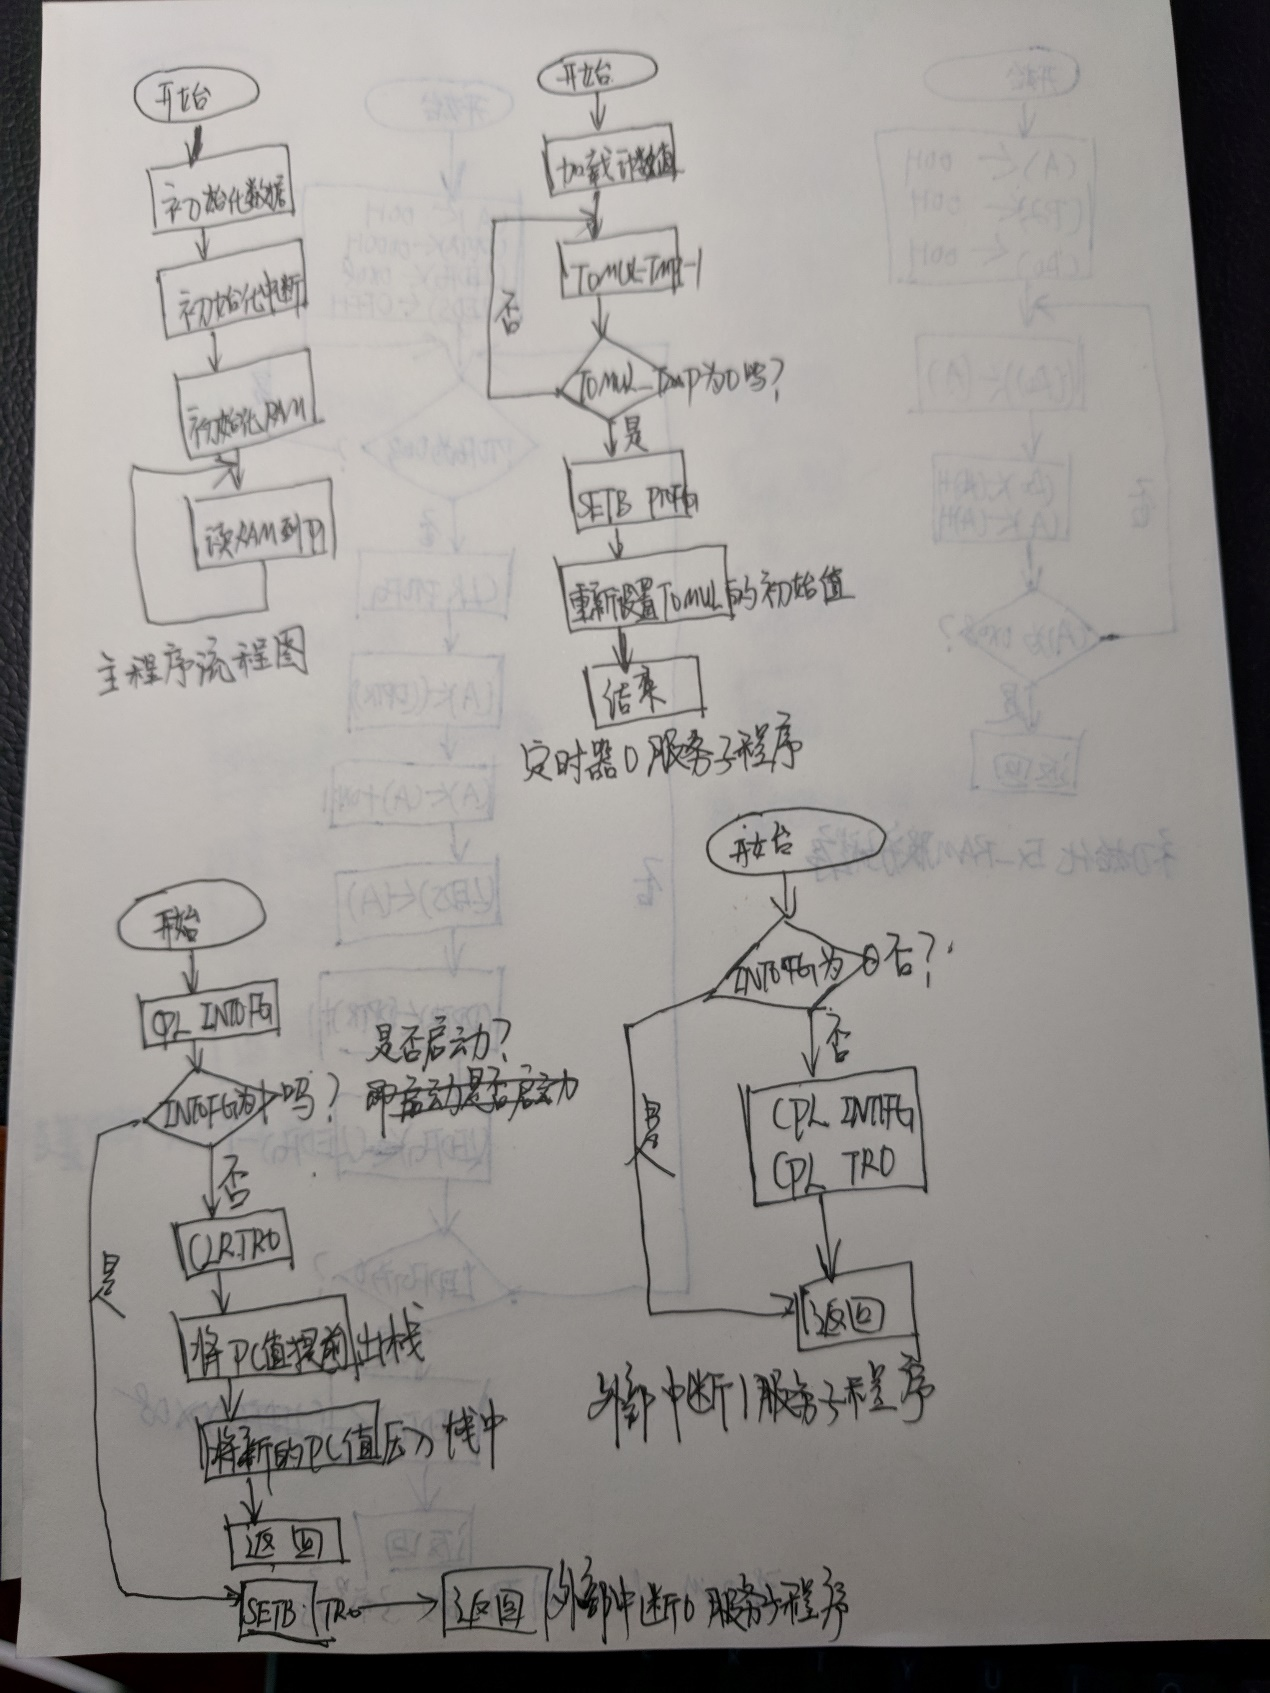 开始
初始化数据
初始化中断
初始化RAM
读RAM到P1
主程序流程图
开始
加载计数值
T0MUL-TMP-1
T0MUL_TMP为0吗?
否
是
SETB PTFG
重新设置T0MUL的初始值
结束
定时器0服务子程序
开始
CPL INT0FG
INT0FG为1吗?
是否启动?
否
是
CLR TR0
将PC值提前出栈
将新的PC值压入栈中
返回
SETB TR0
返回
外部中断0服务子程序
开始
INT0FG为0否?
否
是
CPL INT1FG
CPL TR0
返回
外部中断1服务子程序